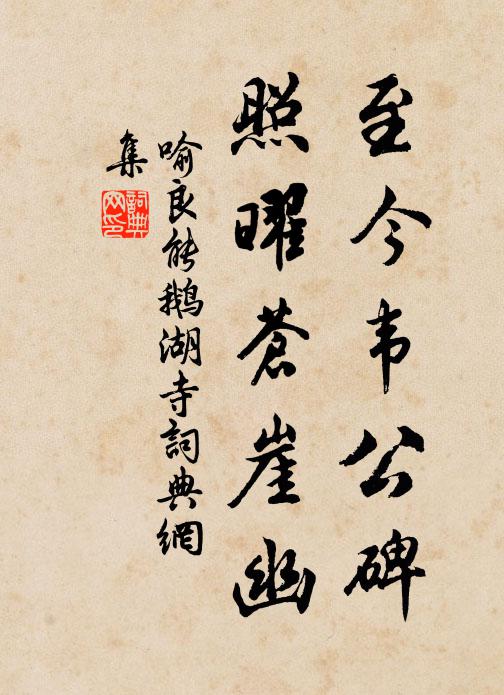 至今韦公碑
照曜苍崖幽
喻良能鹅湖寺詞典網
集
詞典
网印